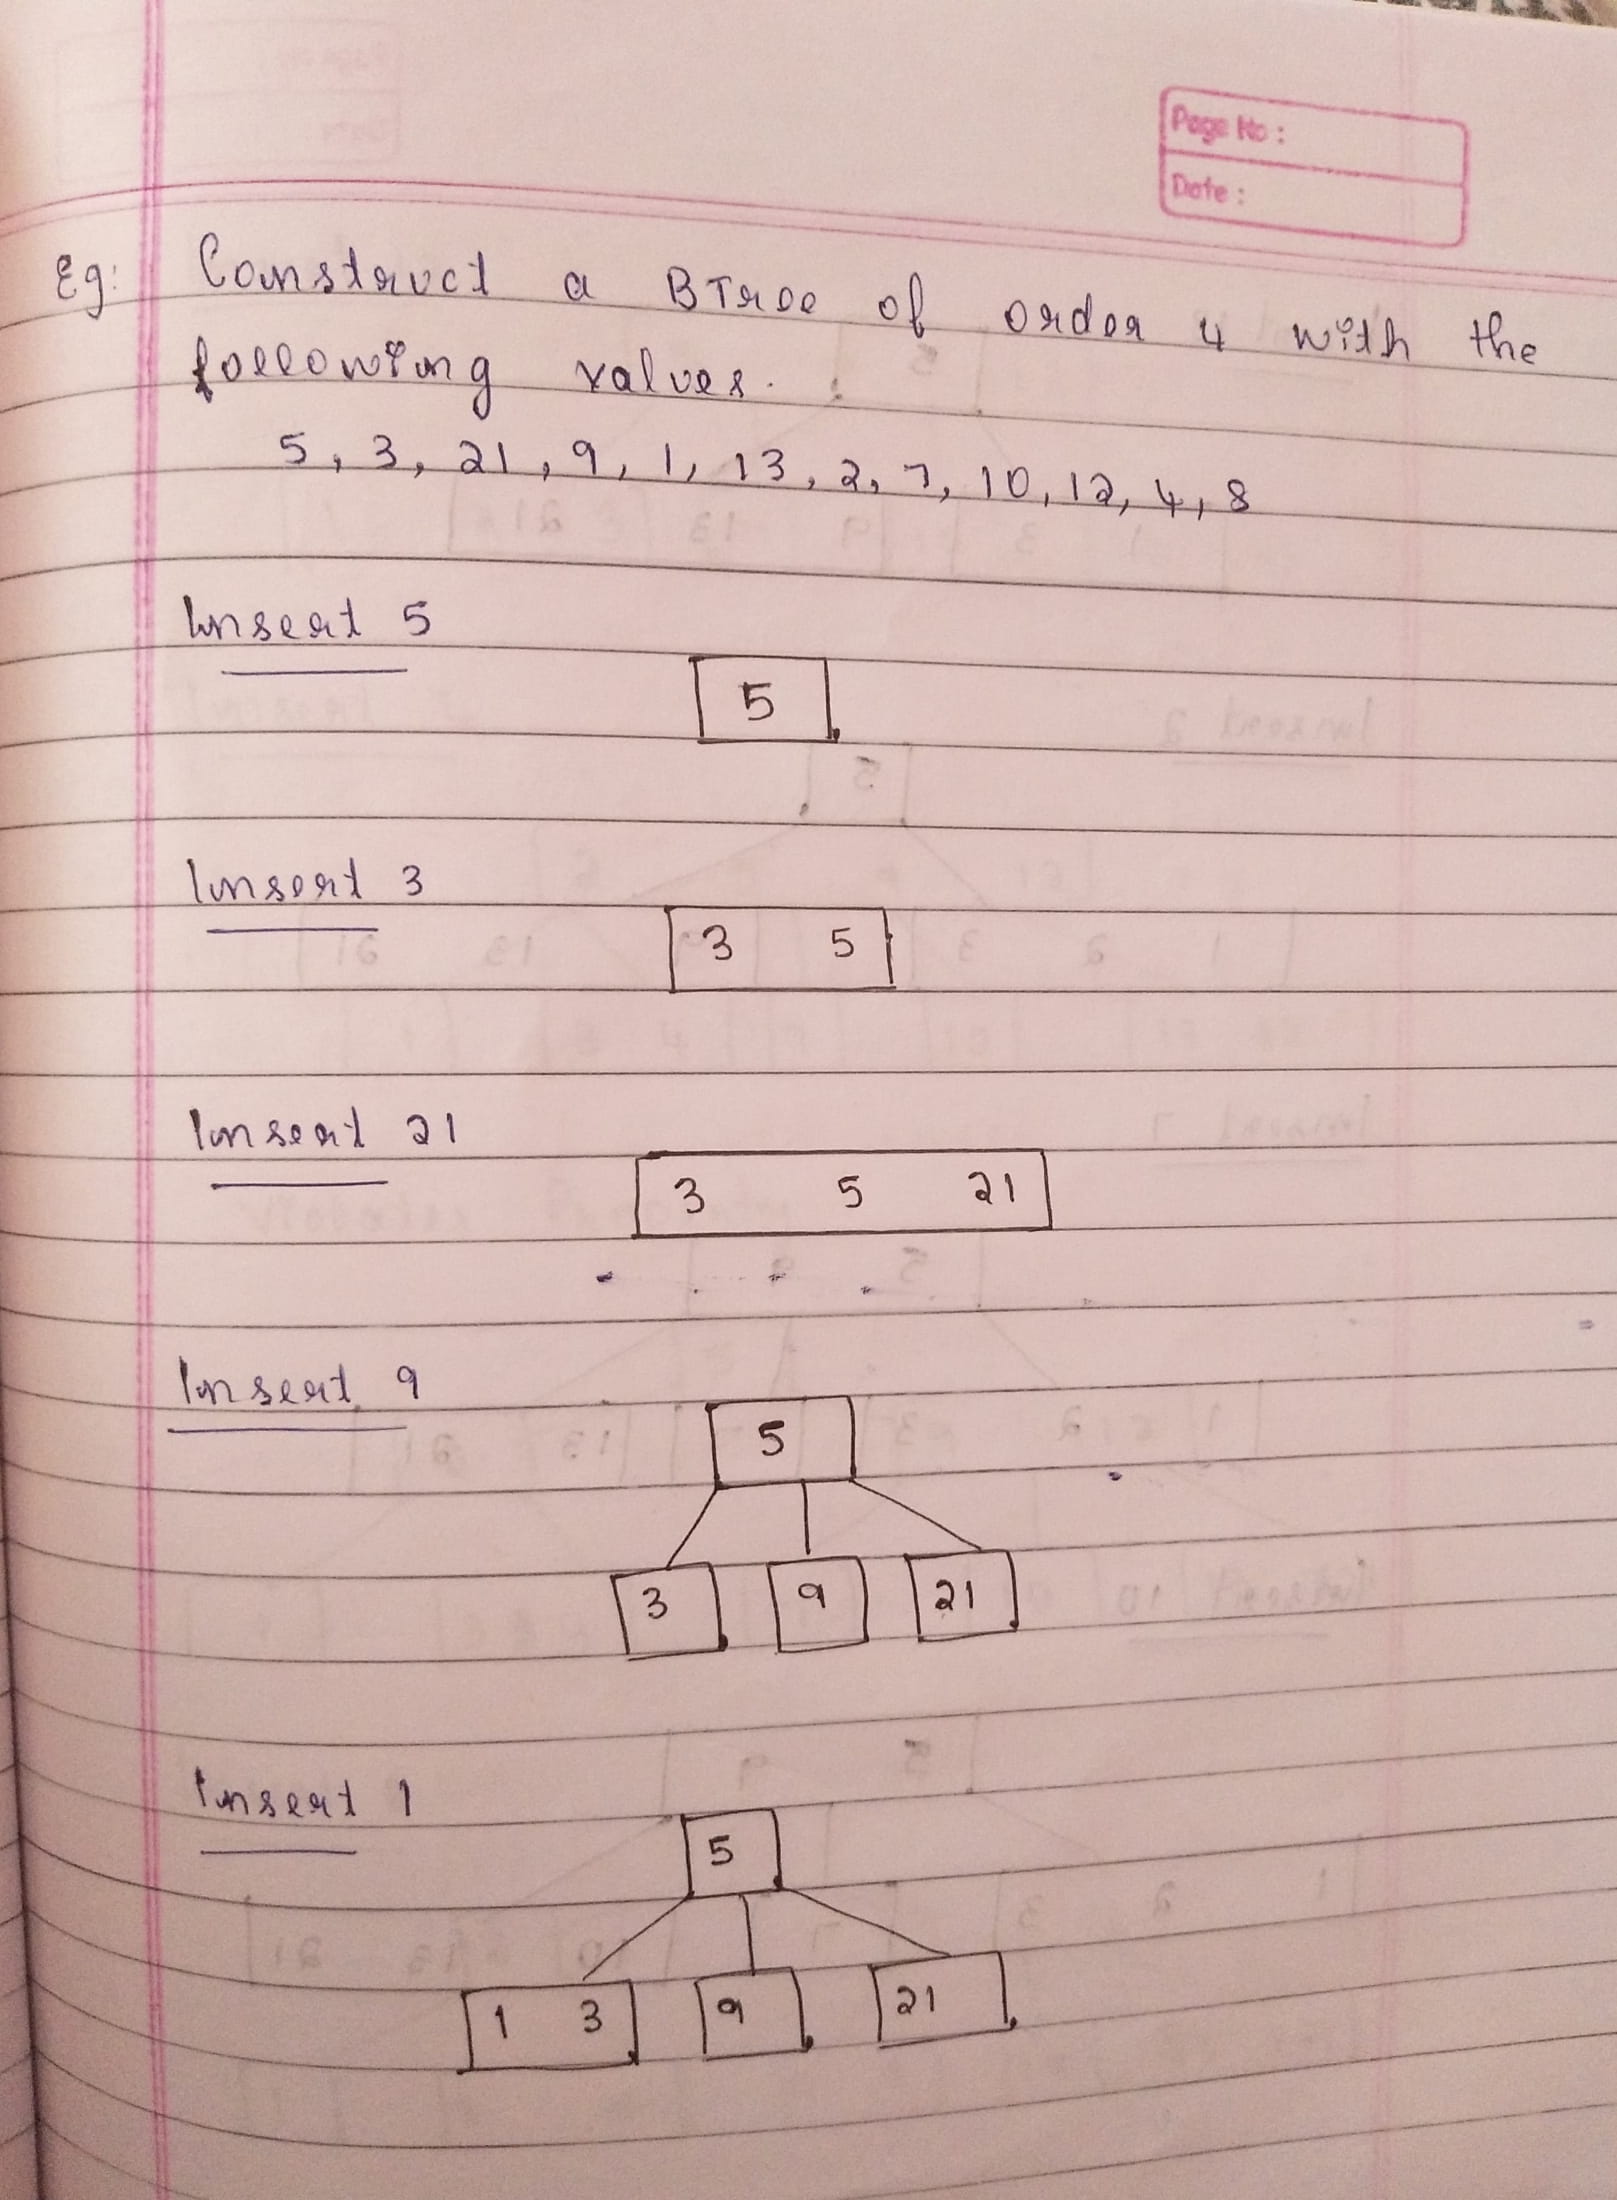 Page No :
Date :
Eg: Construct a BTree of order 4 with the
following values.
5, 3, 21, 9, 1, 13, 2, 7, 10, 12, 4, 8
Insert 5
5
Insert 3
3 5
Insert 21
3 5 21
Insert 9
5
3 9 21
Insert 1
5
1 3 9 21